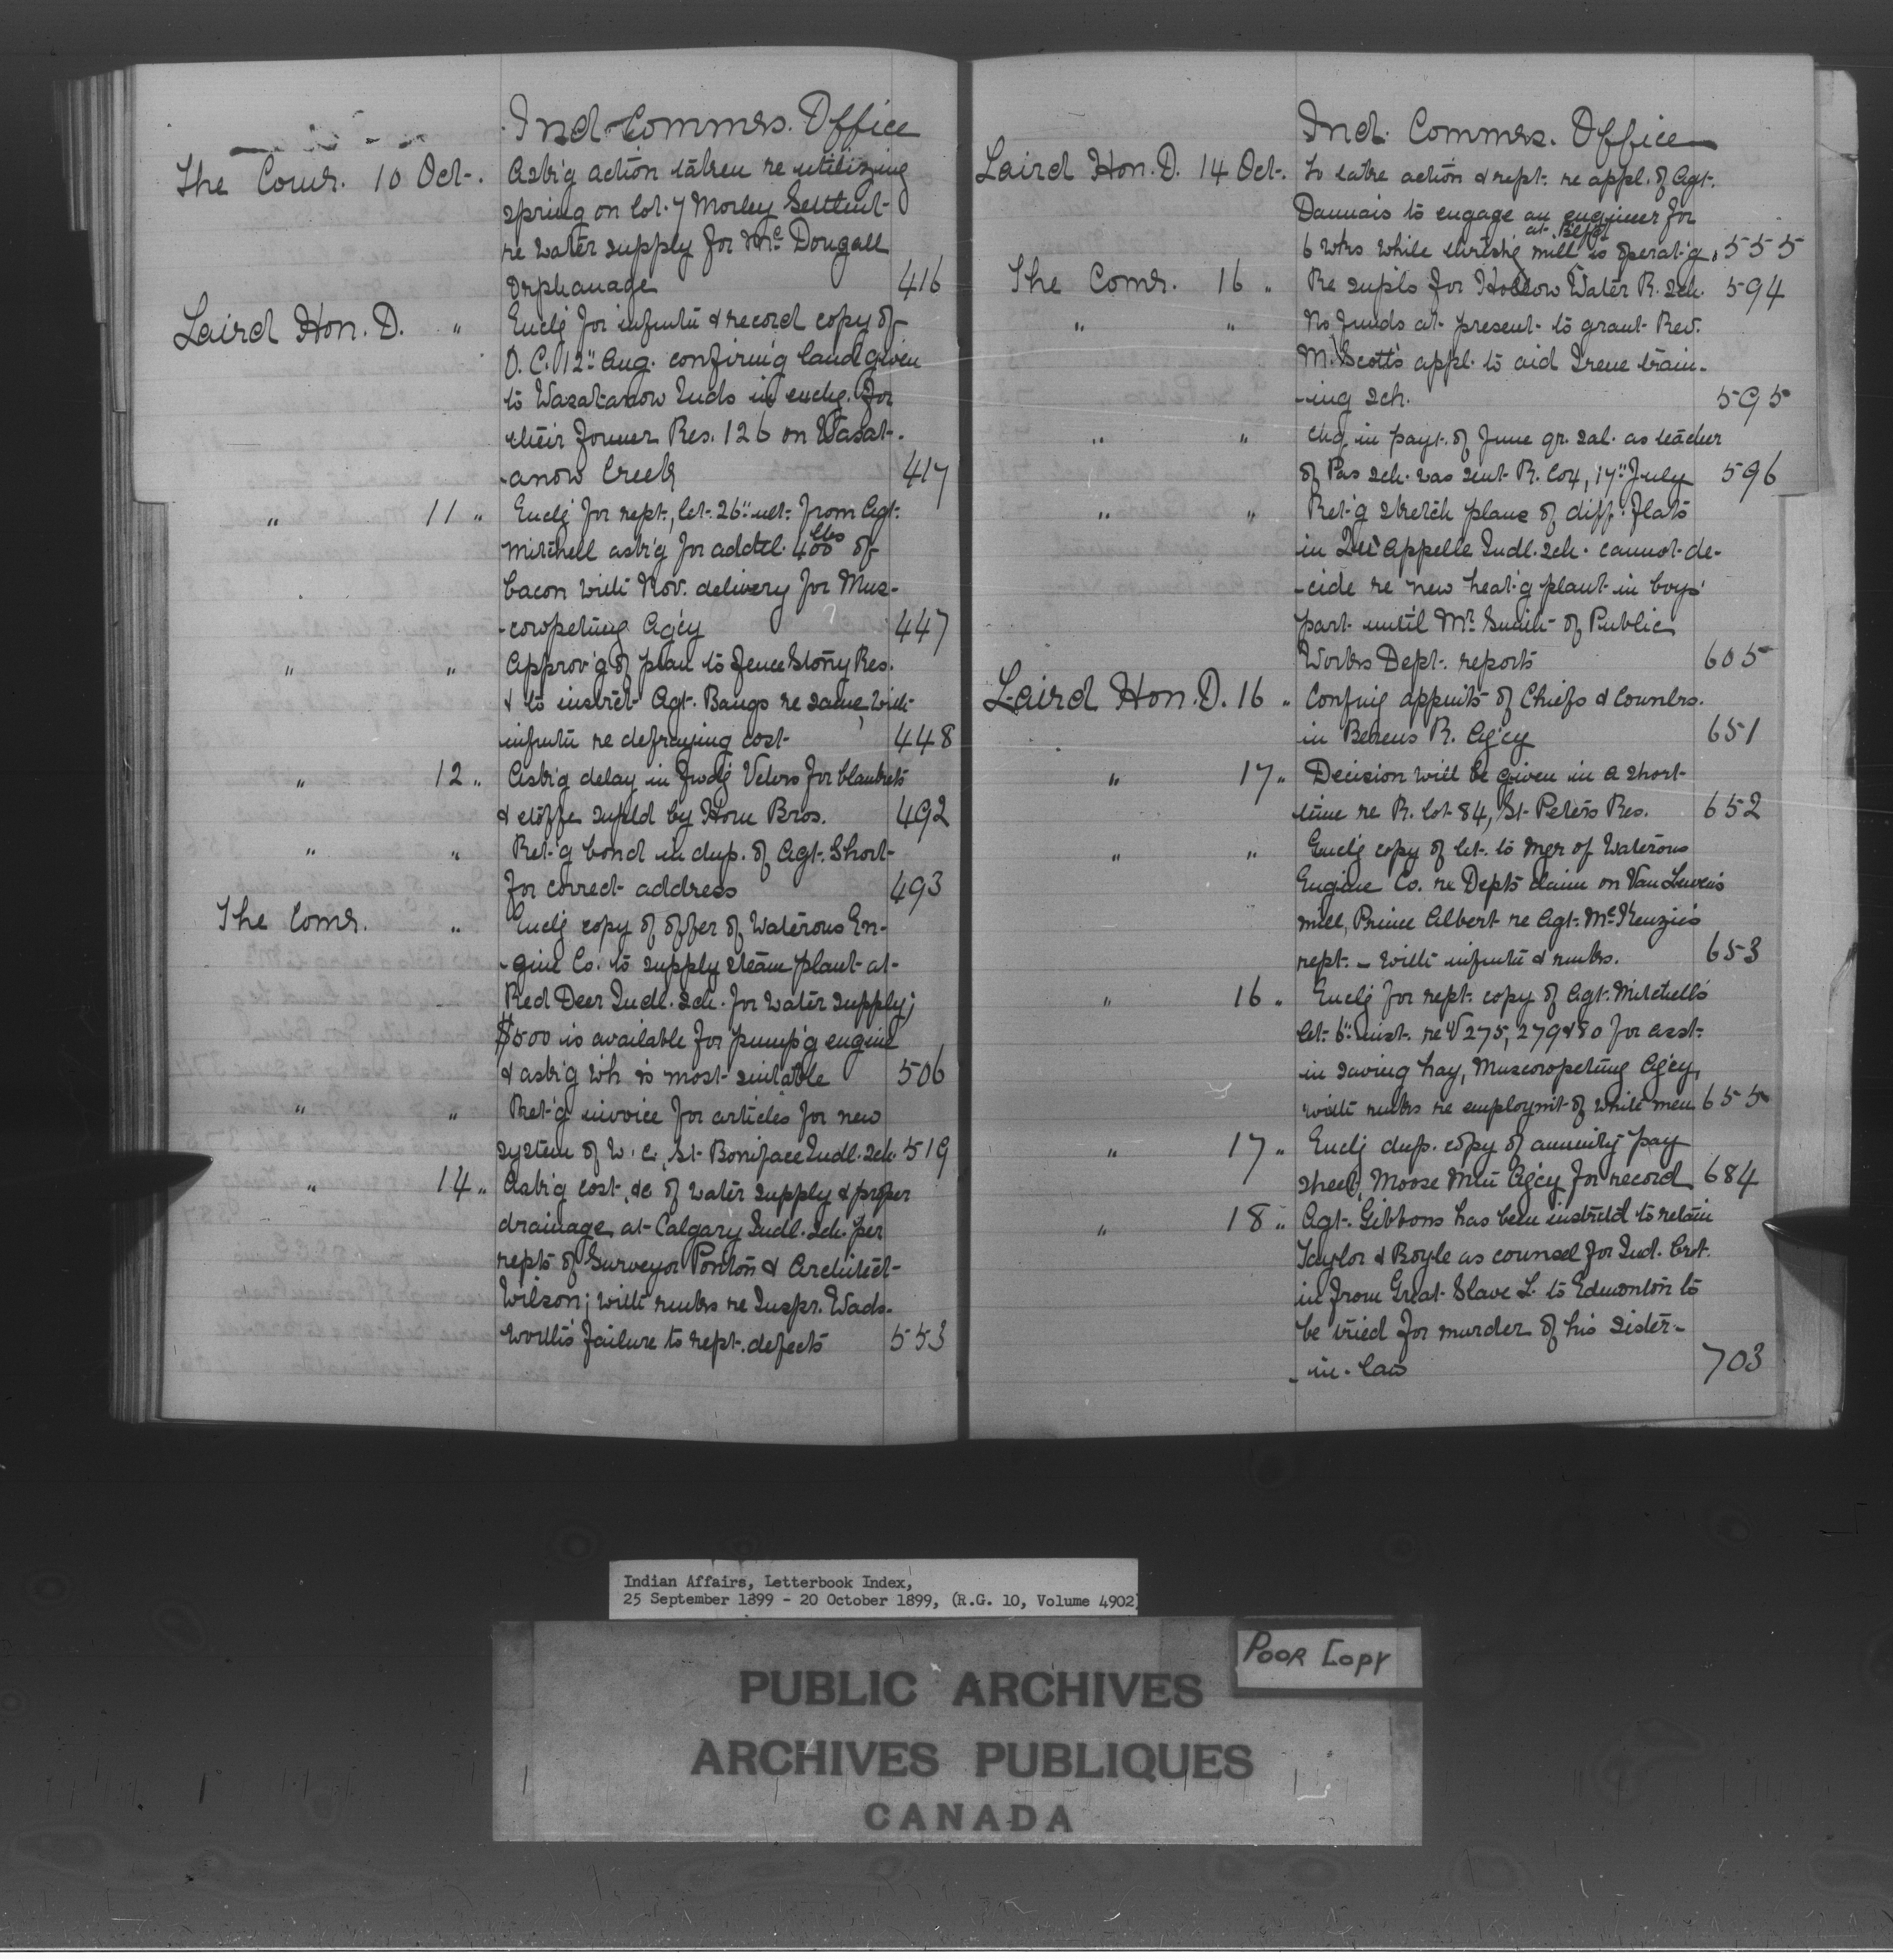 Ind. Commrs. Office
The Comr. 10 Oct. Ask'g action taken re utilizing
spring on lot 7 Morley Settlmt
re water supply for McDougall
Orphanage 416
Laird Hon. D. " Enclg for infmtn & record copy of
O.C. 12" Aug. confirm'g land given
to Wasatanow Inds in exchg. for
their former Res. 126 on Wasat-
-anow Creek 417
" 11 " Enclg for rept, let. 26" ult. from Agt.
Mitchell ask'g for addtl. 400 lbs of
bacon with Nov. delivery for Mus-
-cowpetung Ag'cy 447
" " Approv'g of plan to fence Stony Res.
& to instrct Agt. Bangs re same, with
infmtn re defraying cost 448
" 12 " Ask'g delay in fwdg Vchrs for blankets
& étoffe suppld by Horn Bros. 492
" " Ret'g bond in dup. of Agt. Short
for correct address 493
The Comr. " Enclg copy of offer of Waterous En-
-gine Co. to supply steam plant at
Red Deer Indl. Sch. for water supply;
$500 is available for pump'g engine
& ask'g wh is most suitable 506
" " Ret'g invoice for articles for new
system of W.C., St. Boniface Indl. Sch. 519
" 14 " Ask'g cost, &c of water supply & proper
drainage at Calgary Indl. Sch. per
repts of Surveyor Ponton & Architect
Wilson; with rmks re Inspr. Wads-
worth's failure to rept. defects 553
Ind. Commrs. Office
Laird Hon. D. 14 Oct. To take action & rept. re appl. of Agt.
Dannais to engage an engineer for
6 wks while thresh'g mill at is operat'g. 555
The Comr. 16 " Re suppls for Hollow Water R. Sch. 594
" " No funds at present to grant Rev.
M. Scott's appl. to aid Irene train-
-ing Sch. 595
" " Chq in paymt. of June qr. sal. as teacher
of Pas Sch. was sent R. Coy, 17" July 596
" " Ret'g sketch plans of diff. flats
in Qu'Appelle Indl. Sch. cannot de-
-cide re new heat'g plant in boys'
part until Mr. Smith of Public
Works Dept. reports 605
Laird Hon. D. 16 " Confmg appmts of Chiefs & Counlrs.
in Berens R. Ag'cy 651
" 17 " Decision will be given in a short
time re R. lot 84, St. Peter's Res. 652
" " Enclg copy of let. to Mgr of Waterous
Engine Co. re Dept's claim on Van Luven's
mill, Prince Albert re Agt. McKenzie's
rept. – with infmtn & rmks. 653
" 16 " Enclg for rept. copy of Agt. Mitchell's
let. 6" inst. re V 275, 279 & 80 for asst.
in saving hay, Muscowpetung Ag'cy,
with rmks re employmt of white men 655
" 17 " Enclg dup. copy of annuity pay
sheet, Moose Mtn Ag'cy for record 684
" 18 " Agt. Gibbons has been instrctd to retain
Taylor & Boyle as counsel for Ind. brot.
in from Great Slave L. to Edmonton to
be tried for murder of his sister-
-in-law 703
Indian Affairs, Letterbook Index,
25 September 1899 - 20 October 1899, (R.G. 10, Volume 4902)
POOR COPY
PUBLIC ARCHIVES
ARCHIVES PUBLIQUES
CANADA